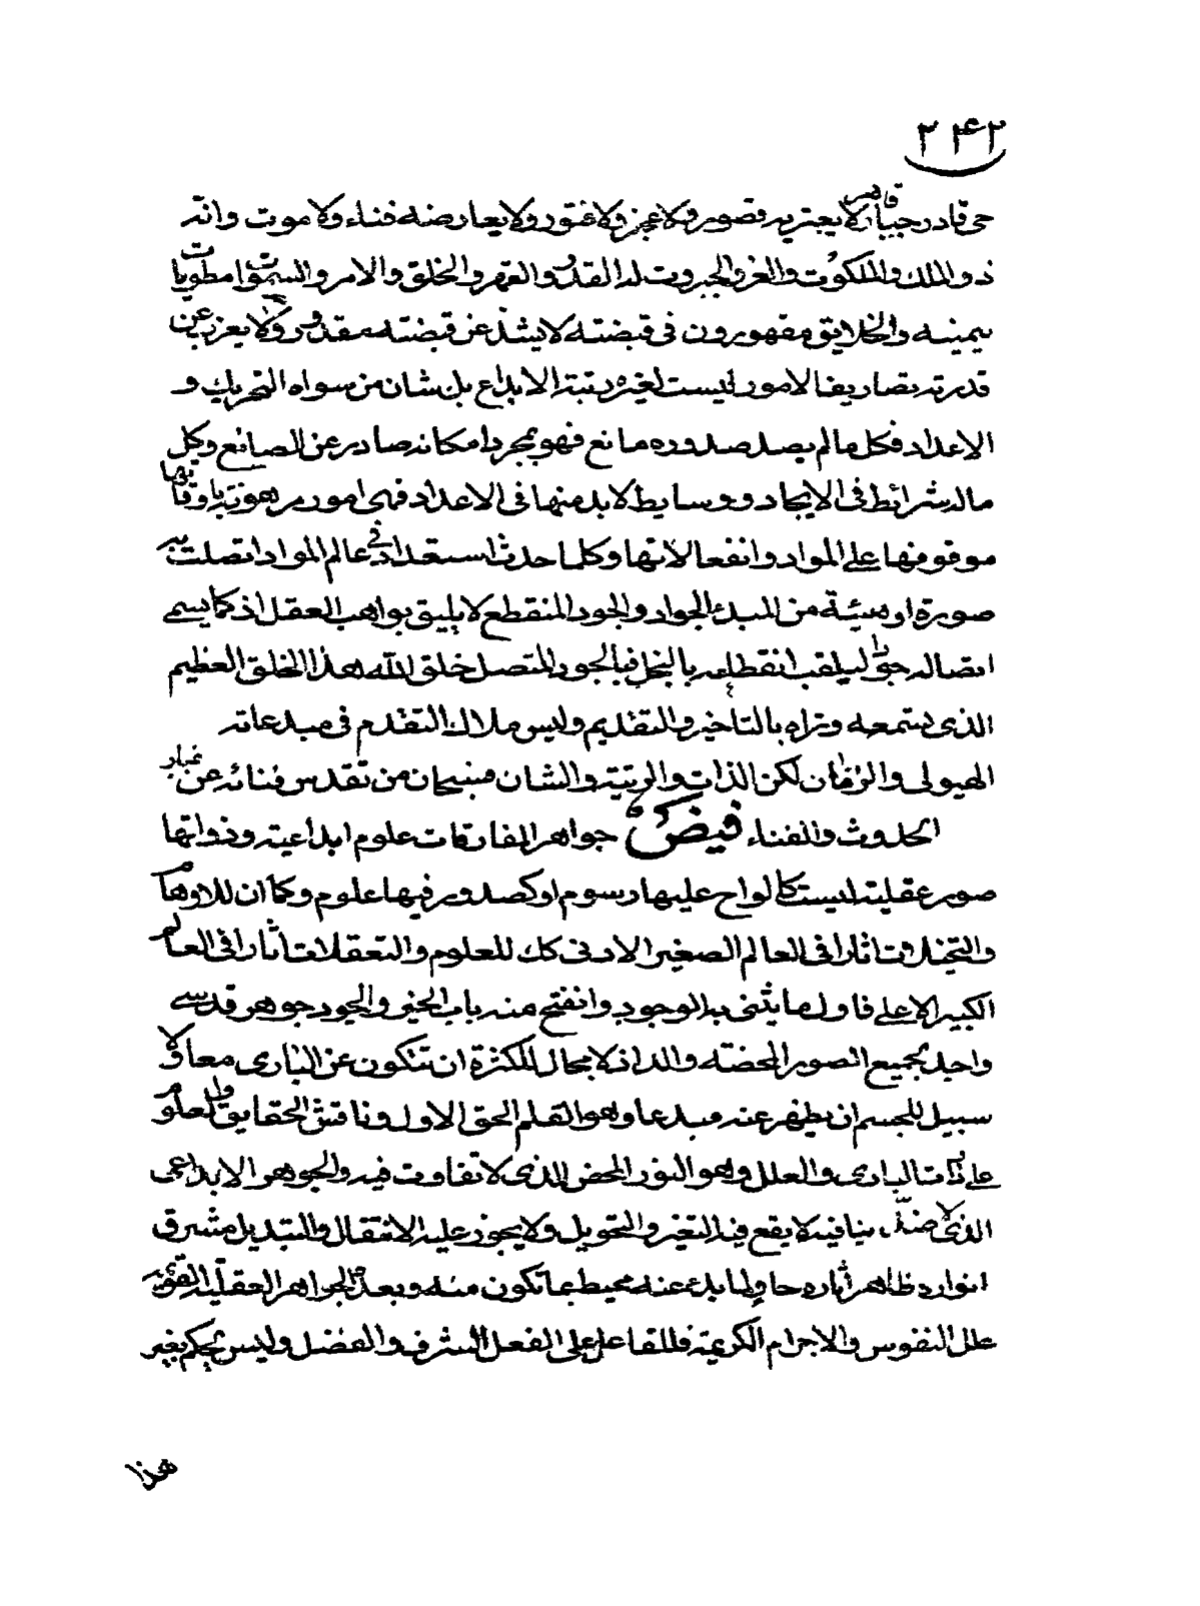 ٢٤٢
حى قادر جبار قاهر لا يعتريه قصور ولا عجز ولا فتور ولا يعارضه فناء ولا موت وانه
ذو الملك والملكوت والعز والجبروت له القدس والقهر والخلق والامر والسموات مطويات
بيمينه والخلايق مقهورون فى قبضته لا يشذ عن قبضته مقدور ولا يعزب عن
قدرته تصاريف الامور ليست لغيره رتبة الابداع بل شان من سواه التحريك و
الاعداد فكل ما لم يصد صدوره مانع فهو بمجرد امكانه صادر عن الصانع وكل
ماله شرائط فى الايجاد ووسايط لا بد منها فى الاعداد فهى امور مرهونة باوقاتها
موقوفها على المواد وانفعالاتها وكلما حدث استعداد فى عالم المواد اتصلت به
صورة او هيئة من المبدء الجواد والجود المنقطع لا يليق بواهب العقل اذ كما يسمى
اتصاله جواد ليلقب انقطاعه بالبخل فبالجود المتصل خلق الله هذا الخلق العظيم
الذى تسمعه وتراه بالتاخير والتقديم وليس ملاك التقدم فى مبدعاته
الهيولى والزمان لكن الذات والرتبة والشان فسبحان من تقدس فنائه عن غبار
الحدوث والفناء فيض جواهر المفارقات علوم ابداعية وذواتها
صور عقلية ليست كالواح عليها رسوم او كصدور فيها علوم وكما ان للاوهام
والتخيلات اثارا فى العالم الصغير الادنى كك للعلوم والتعقلات اثار فى العالم
الكبير الاعلى فاول ما يثنى به الوجود وانفتح منه باب الخير والجود جوهر قدسى
واحد بجميع الصور المحضة والذ اذ لا مجال للكثرة ان تتكون عن البارى معا ولا
سبيل للجسم ان يظهر عنه مبدعا وهو القلم الحق الاول وناقش الحقايق والعلوم
على ذات البارى والعلل وهو النور المحض الذى لا تفاوت فيه والجوهر الابداعى
الذى لا ضد ينافيه لا يقع فيه التغير والتحويل ولا يجوز عليه الانتقال والتبديل مشرق
انواره ظاهر اثاره حاو لما بدع عنه محيط بما تكون منه وبعده الجواهر العقلية القوية
علل النفوس والاجرام الكريمة فللفاعل على الفعل الشرف والفضل وليس بحكم بغير
هذا